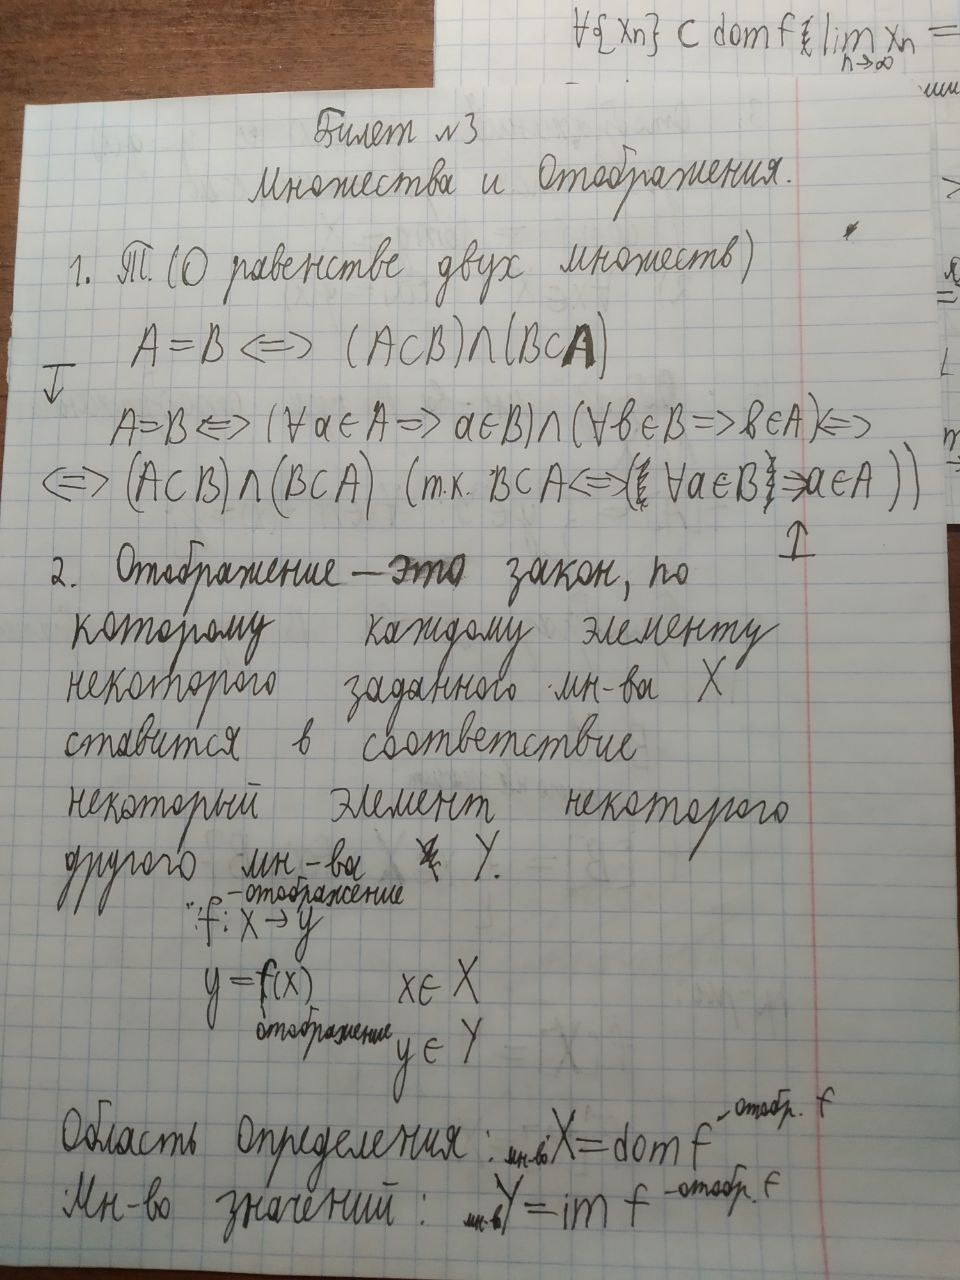 ∀{xn} ⊂ dom f lim xn =
n→∞
Билет №3
Множества и Отображения.
1. Т. (О равенстве двух множеств)
A=B <=> (A⊂B)∩(B⊂A)
A=B <=> (∀a∈A => a∈B)∩(∀b∈B => b∈A) <=>
<=> (A⊂B)∩(B⊂A) (т.к. B⊂A <=> (∀a∈B => a∈A))
2. Отображение – это закон, по
которому каждому элементу
некоторого заданного мн-ва X
ставится в соответствие
некоторый элемент некоторого
другого мн-ва Y.
– отображение
f: X → y
y = f(x) x ∈ X
отображение
y ∈ Y
Область Определения: мн-во X = dom f – отобр. f
Мн-во значений: мн-в Y = im f – отобр. f